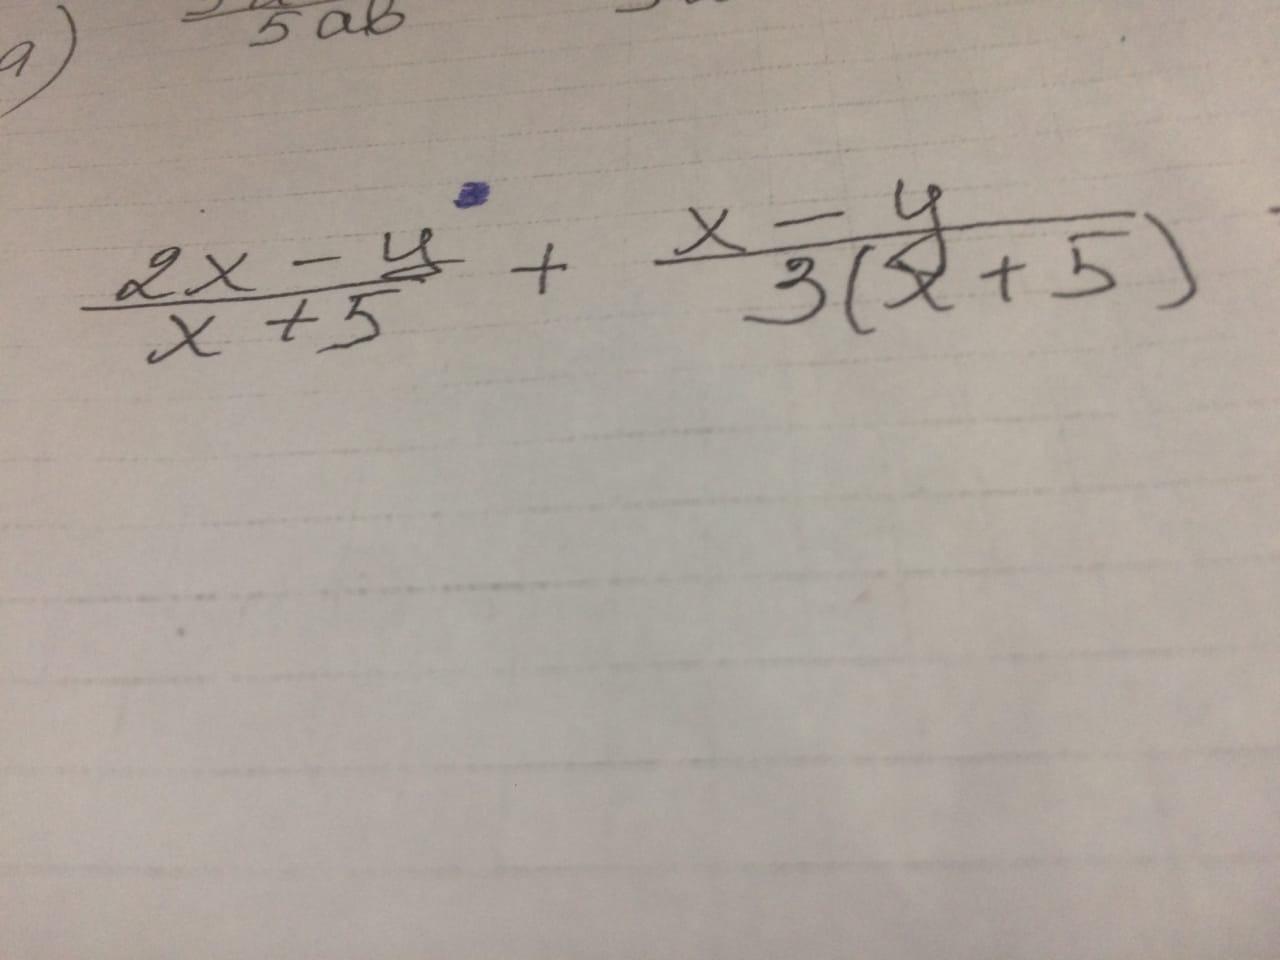 a) 5ab
2x - y / x + 5 + x - y / 3(x + 5)